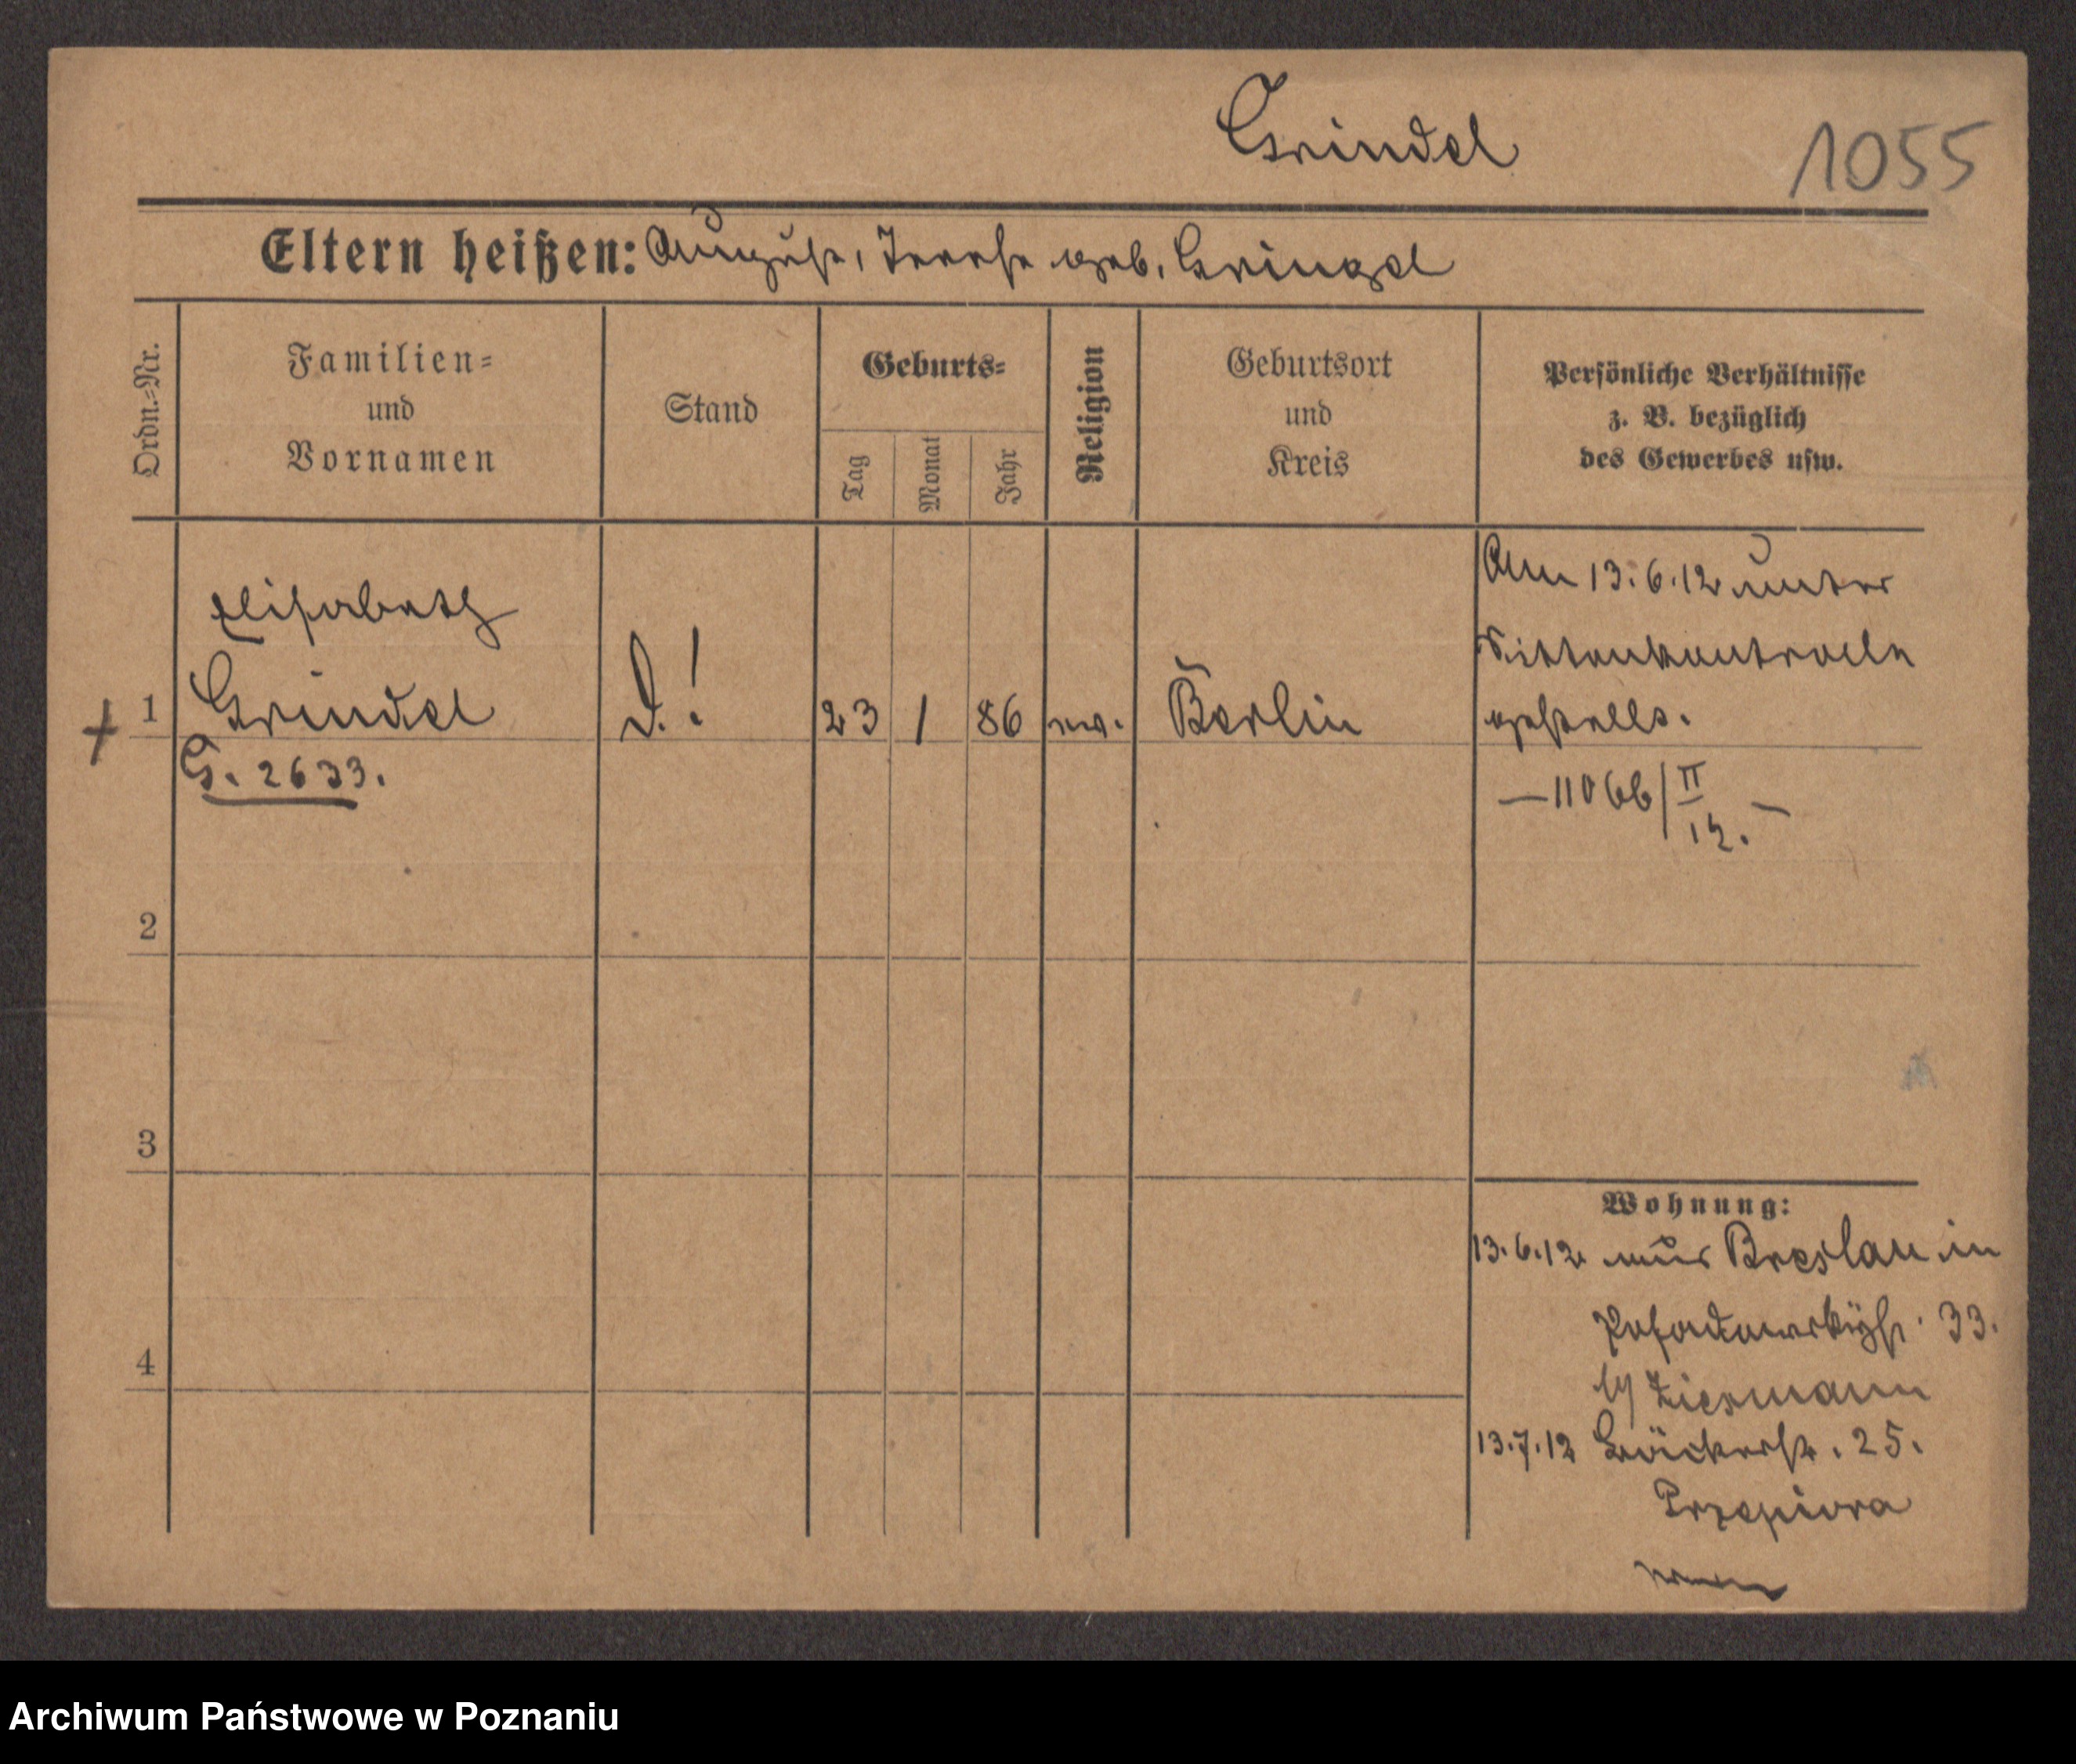 Grindel
1055
Eltern heißen: August, Terese geb. Gringel
Ordn.=Nr.
Familien=
und
Vornamen
Stand
Geburts=
Tag
Monat
Jahr
Religion
Geburtsort
und
Kreis
Persönliche Verhältnisse
z. B. bezüglich
des Gewerbes usw.
Elisabeth
Grindel
G. 2633.
1
D.!
23
1
86
ev.
Berlin
Am 13.6.12 unter
Sittenkontrolle
gestellt.
— 11066/II
12. —
2
3
4
Wohnung:
13.6.12 aus Breslau in
Posadowskystr. 33.
b/ Ziesmann
13.7.12 Bäckerstr. 25.
Przepiora
Archiwum Państwowe w Poznaniu